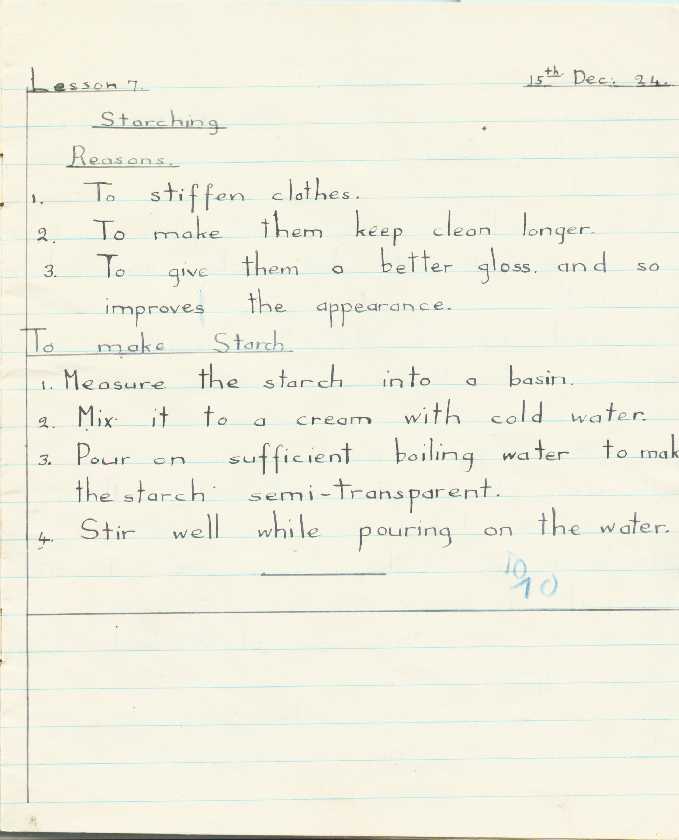 Lesson 7. 15th Dec. 24.
Starching
Reasons.
1. To stiffen clothes.
2. To make them keep clean longer.
3. To give them a better gloss. and so
improves the appearance.
To make Starch
1. Measure the starch into a basin.
2. Mix it to a cream with cold water.
3. Pour on sufficient boiling water to mak
the starch semi-transparent.
4. Stir well while pouring on the water.
10
10